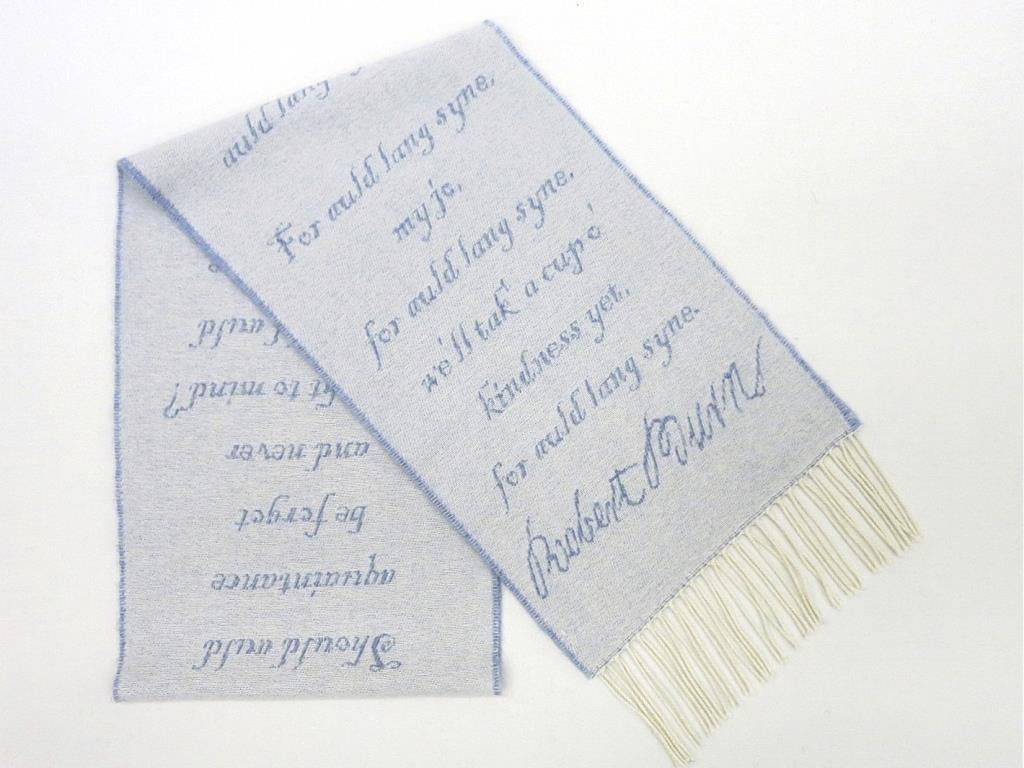 Should auld
aquaintance
be forgot
and never
to mind?
auld
auld lang
For auld lang syne,
my jo,
for auld lang syne,
we'll tak' a cup o'
kindness yet,
for auld lang syne.
Robert Burns